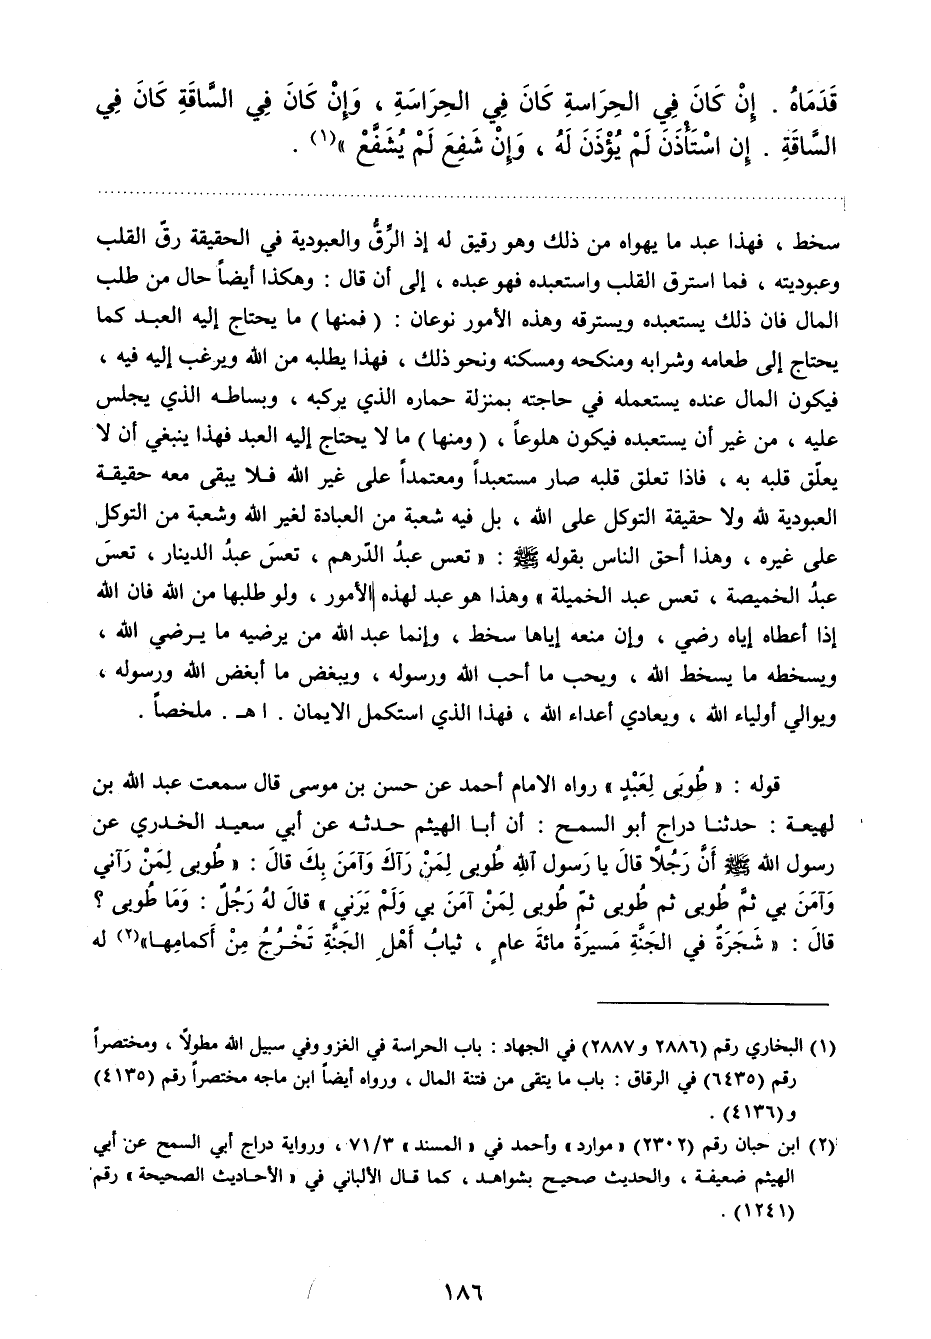 قَدَمَاهُ . إِنْ كَانَ فِي الحِرَاسةِ كَانَ فِي الحِرَاسَةِ ، وَإِنْ كَانَ فِي السَّاقَةِ كَانَ فِي
السَّاقَةِ . إِن اسْتَأْذَنَ لَمْ يُؤْذَنَ لَهُ ، وَإِنْ شَفِعَ لَمْ يُشَفَّعْ »(١) .
سخط ، فهذا عبد ما يهواه من ذلك وهو رقيق له إذ الرِّقُّ والعبودية في الحقيقة رقّ القلب
وعبوديته ، فما استرق القلب واستعبده فهو عبده ، إلى أن قال : وهكذا أيضاً حال من طلب
المال فان ذلك يستعبده ويسترقه وهذه الأمور نوعان : ( فمنها ) ما يحتاج إليه العبد كما
يحتاج إلى طعامه وشرابه ومنكحه ومسكنه ونحو ذلك ، فهذا يطلبه من الله ويرغب إليه فيه ،
فيكون المال عنده يستعمله في حاجته بمنزلة حماره الذي يركبه ، وبساطه الذي يجلس
عليه ، من غير أن يستعبده فيكون هلوعاً ، ( ومنها ) ما لا يحتاج إليه العبد فهذا ينبغي أن لا
يعلّق قلبه به ، فاذا تعلق قلبه صار مستعبداً ومعتمداً على غير الله فلا يبقى معه حقيقة
العبودية لله ولا حقيقة التوكل على الله ، بل فيه شعبة من العبادة لغير الله وشعبة من التوكل
على غيره ، وهذا أحق الناس بقوله ﷺ : « تعس عبدُ الدّرهم ، تعسَ عبدُ الدينار ، تعسَ
عبدُ الخميصة ، تعس عبد الخميلة » وهذا هو عبد لهذه الأمور ، ولو طلبها من الله فان الله
إذا أعطاه إياه رضي ، وإن منعه إياها سخط ، وإنما عبد الله من يرضيه ما يرضي الله ،
ويسخطه ما يسخط الله ، ويحب ما أحب الله ورسوله ، ويبغض ما أبغض الله ورسوله ،
ويوالي أولياء الله ، ويعادي أعداء الله ، فهذا الذي استكمل الايمان . اهـ . ملخصاً .
قوله : « طُوبَى لِعَبْدٍ » رواه الامام أحمد عن حسن بن موسى قال سمعت عبد الله بن
لهيعة : حدثنا دراج أبو السمح : أن أبا الهيثم حدثه عن أبي سعيد الخدري عن
رسول الله ﷺ أَنَّ رَجُلاً قالَ يا رَسول اللهِ طُوبى لِمَنْ رَآكَ وَآمَنَ بِكَ قالَ : « طُوبى لِمَنْ رَآني
وَآمَنَ بي ثمَّ طُوبى ثم طُوبى ثمّ طُوبى لِمَنْ آمَنَ بي وَلَمْ يَرَني » قالَ لهُ رَجُلٌ : وَمَا طُوبى ؟
قالَ : « شَجَرَةٌ في الجَنَّةِ مَسيرَةُ مائةَ عامٍ ، ثيابُ أَهْلِ الجَنَّةِ تَخْرُجُ مِنْ أَكمامِها»(٢) له
(١) البخاري رقم (٢٨٨٦ و٢٨٨٧) في الجهاد : باب الحراسة في الغزو وفي سبيل الله مطولاً ، ومختصراً
رقم (٦٤٣٥) في الرقاق : باب ما يتقى من فتنة المال ، ورواه أيضاً ابن ماجه مختصراً رقم (٤١٣٥)
و(٤١٣٦) .
(٢) ابن حبان رقم (٢٣٠٢) «موارد» وأحمد في « المسند » ٧١/٣ ، ورواية دراج أبي السمح عن أبي
الهيثم ضعيفة ، والحديث صحيح بشواهد ، كما قال الألباني في « الأحاديث الصحيحة » رقم
(١٢٤١) .
١٨٦